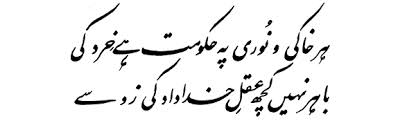 ہر خاکی و نُوری پہ حکومت ہے خرد کی
باہر نہیں کچھ عقلِ خداداد کی زد سے